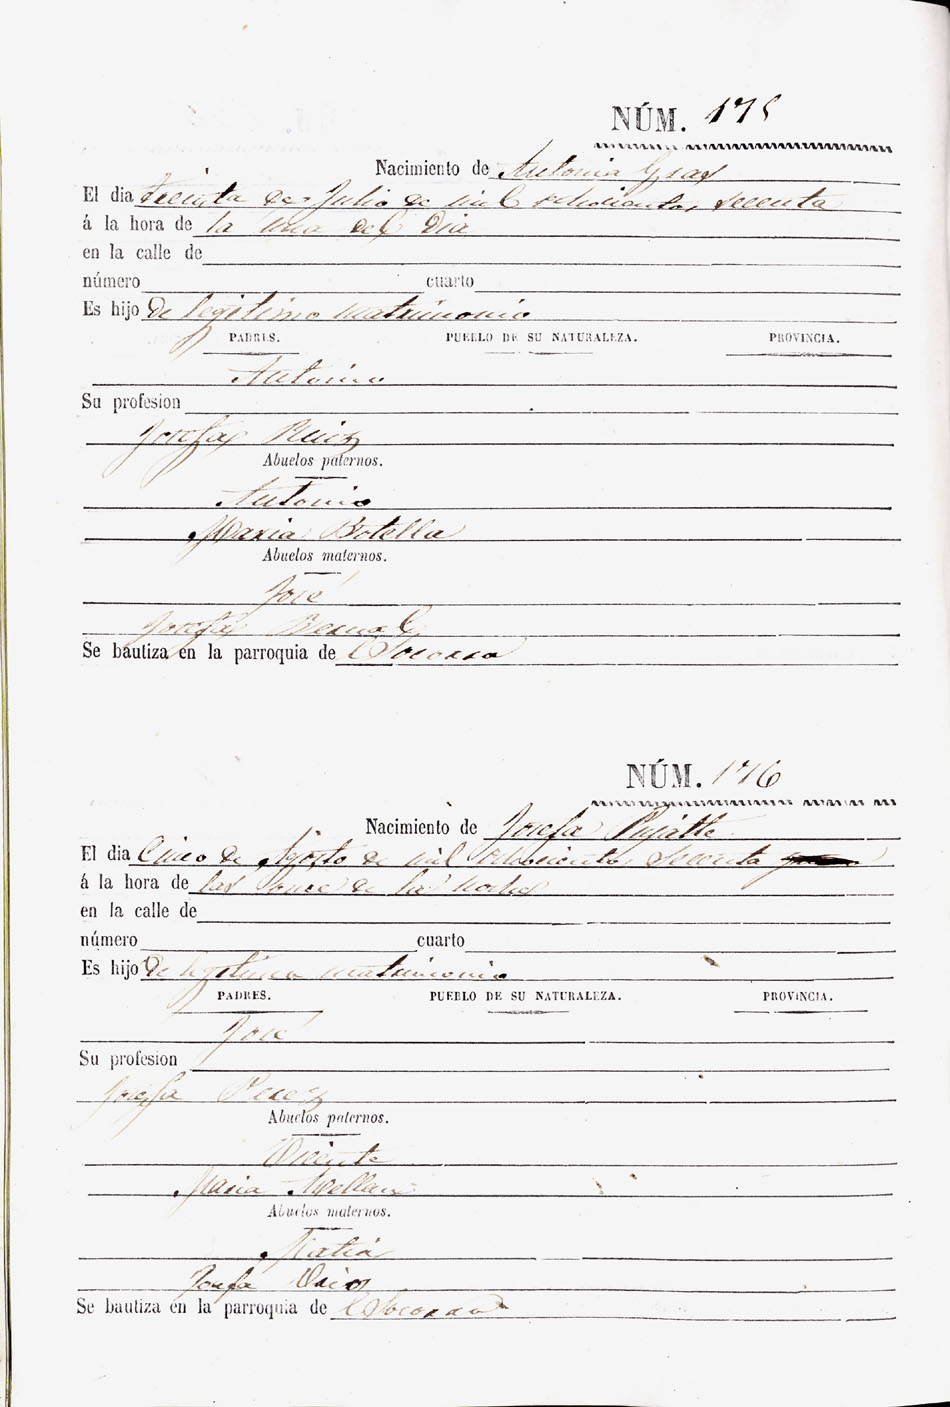 NÚM. 175
Nacimiento de Antonia Gras
El dia treinta de Julio de mil ochocientos secenta
á la hora de la una del Dia
en la calle de
número cuarto
Es hijo de legitimo matrimonio
PADRES. PUEBLO DE SU NATURALEZA. PROVINCIA.
Antonio
Su profesion
Josefa Ruiz
Abuelos paternos.
Antonio
Maria Botella
Abuelos maternos.
José
Josefa Bernal
Se bautiza en la parroquia de l Socorro
NÚM. 176
Nacimiento de Josefa
El dia Cinco de Agosto de mil ochocientos secenta
á la hora de las once de la noche
en la calle de
número cuarto
Es hijo de legitimo matrimonio
PADRES. PUEBLO DE SU NATURALEZA. PROVINCIA.
José
Su profesion
Josefa Perez
Abuelos paternos.
Vicente
Maria
Abuelos maternos.
Matia
Josefa
Se bautiza en la parroquia de l Socorro